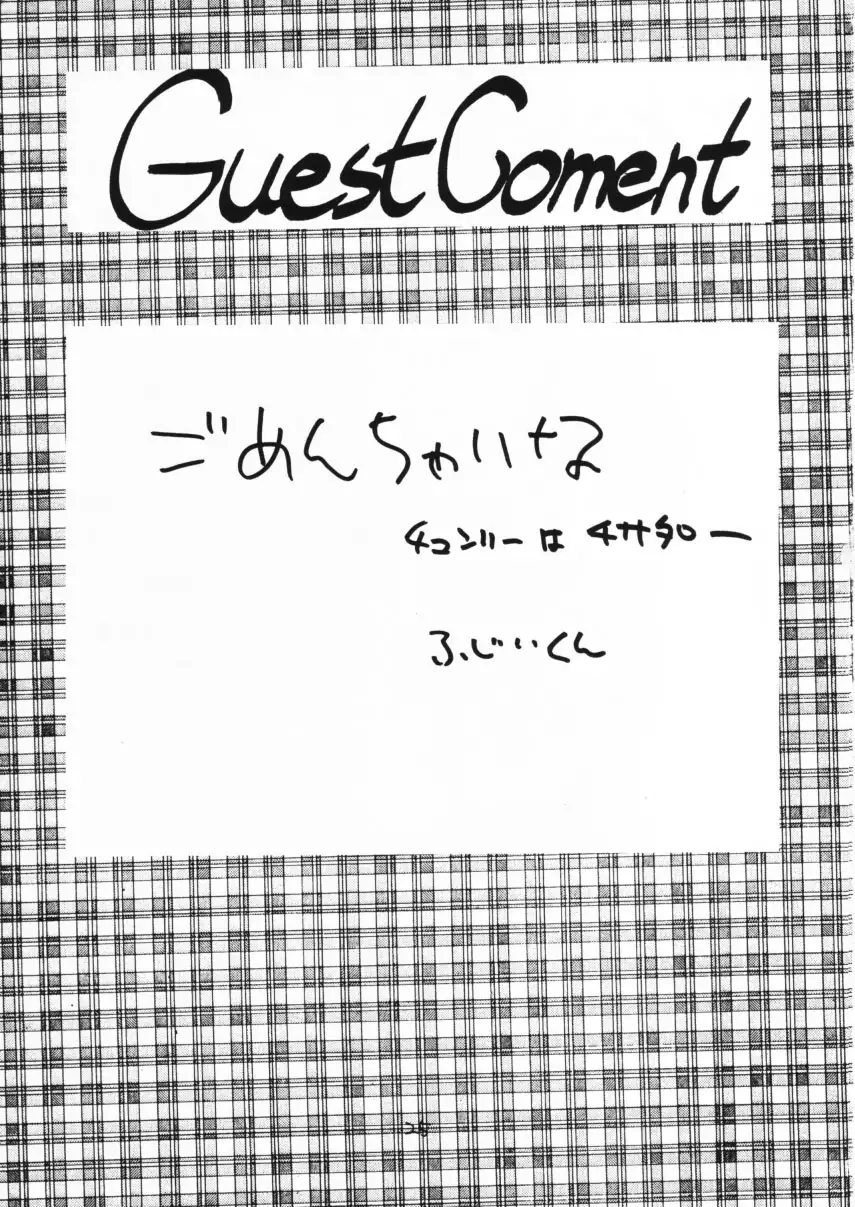 Guest Coment
ごめんちゃいな
チュンリーは
ふじいくん